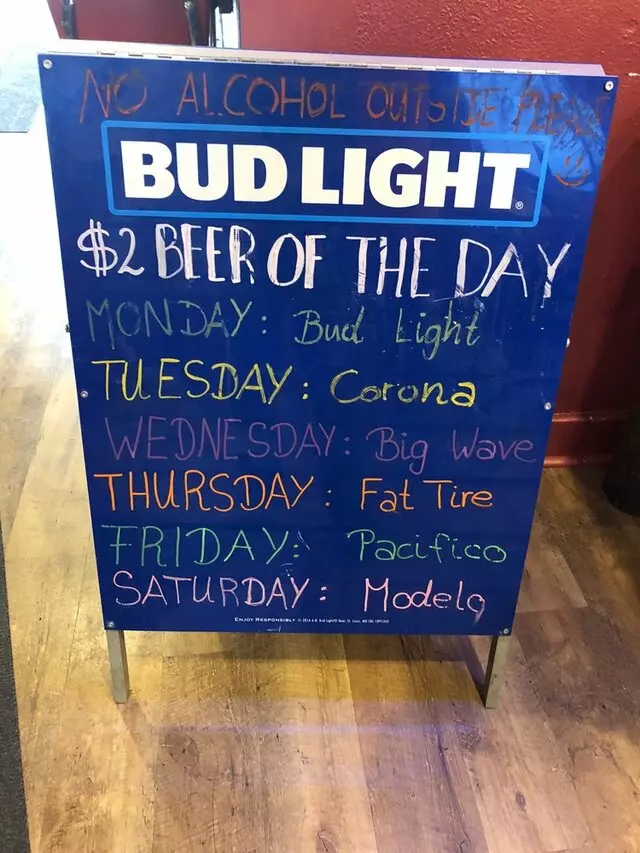 NO ALCOHOL OUTSIDE PLEASE
BUD LIGHT®
$2 BEER OF THE DAY
MONDAY: Bud Light
TUESDAY: Corona
WEDNESDAY: Big Wave
THURSDAY: Fat Tire
FRIDAY: Pacifico
SATURDAY: Modelo
ENJOY RESPONSIBLY